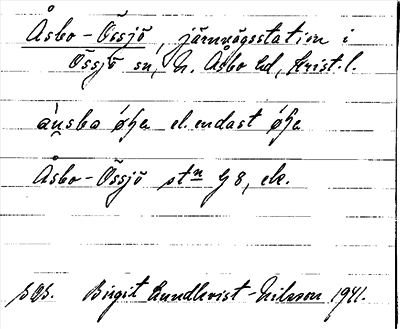 Åsbo-Össjö, järnvägsstation i
Össjö sn, N. Åsbo hd, Krist. l.
åusba øʃa el. endast øʃa
Åsbo-Össjö stn G8, ek.
Birgit Lundkvist-Nilsson 1941.